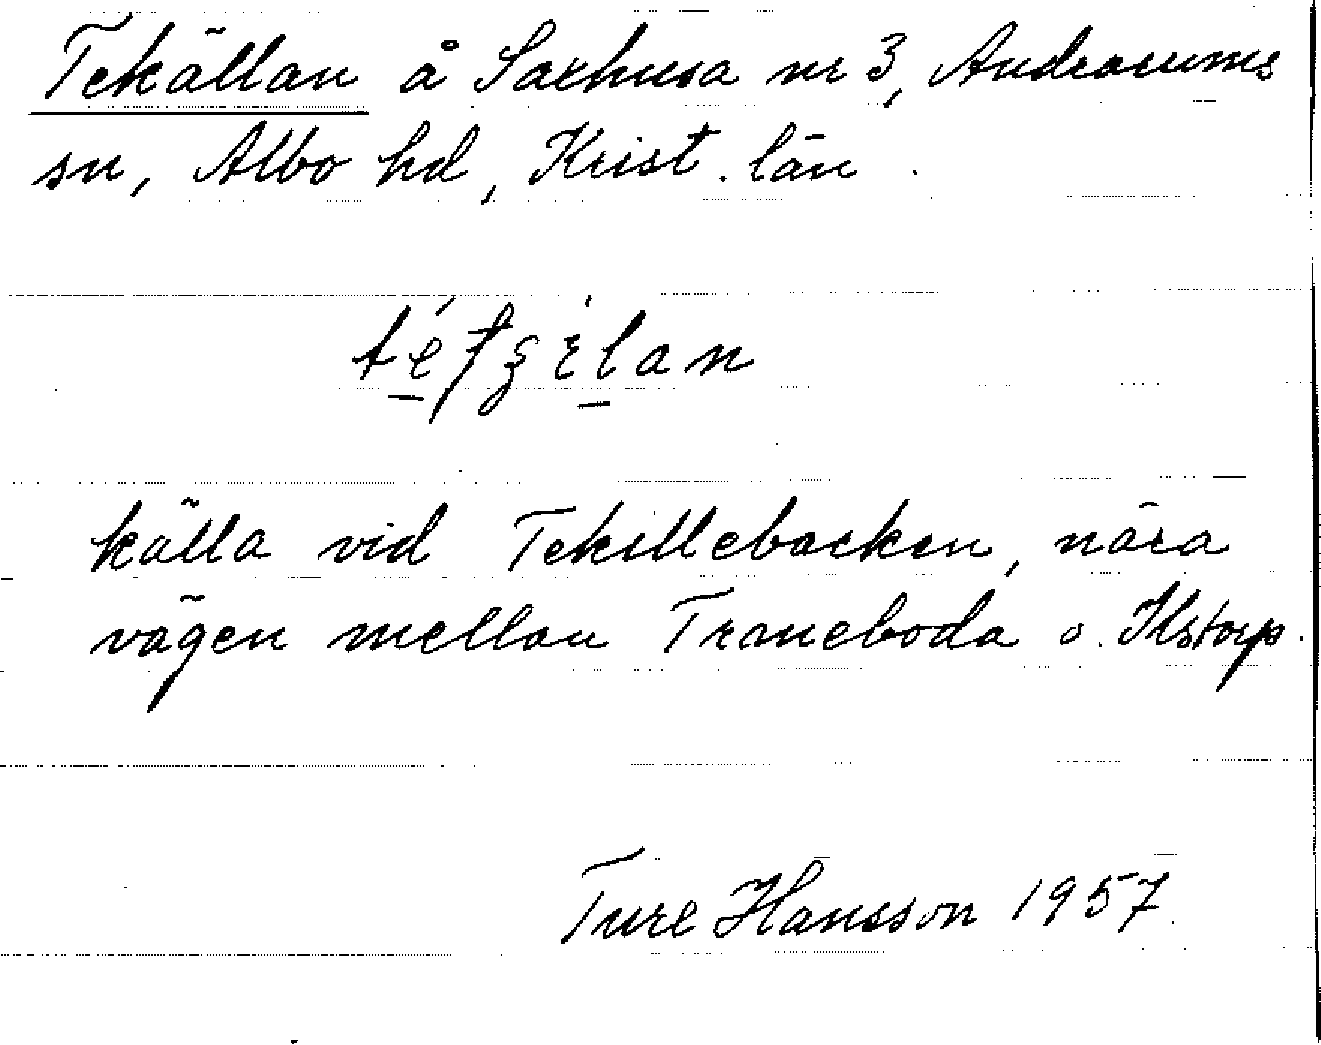 Tekällan å Saxhusa nr 3, Andrarums
sn, Albo hd, Krist. län.
källa vid Tekillebacken, nära
vägen mellan Traneboda o. Ilstorp.
Ture Hansson 1957